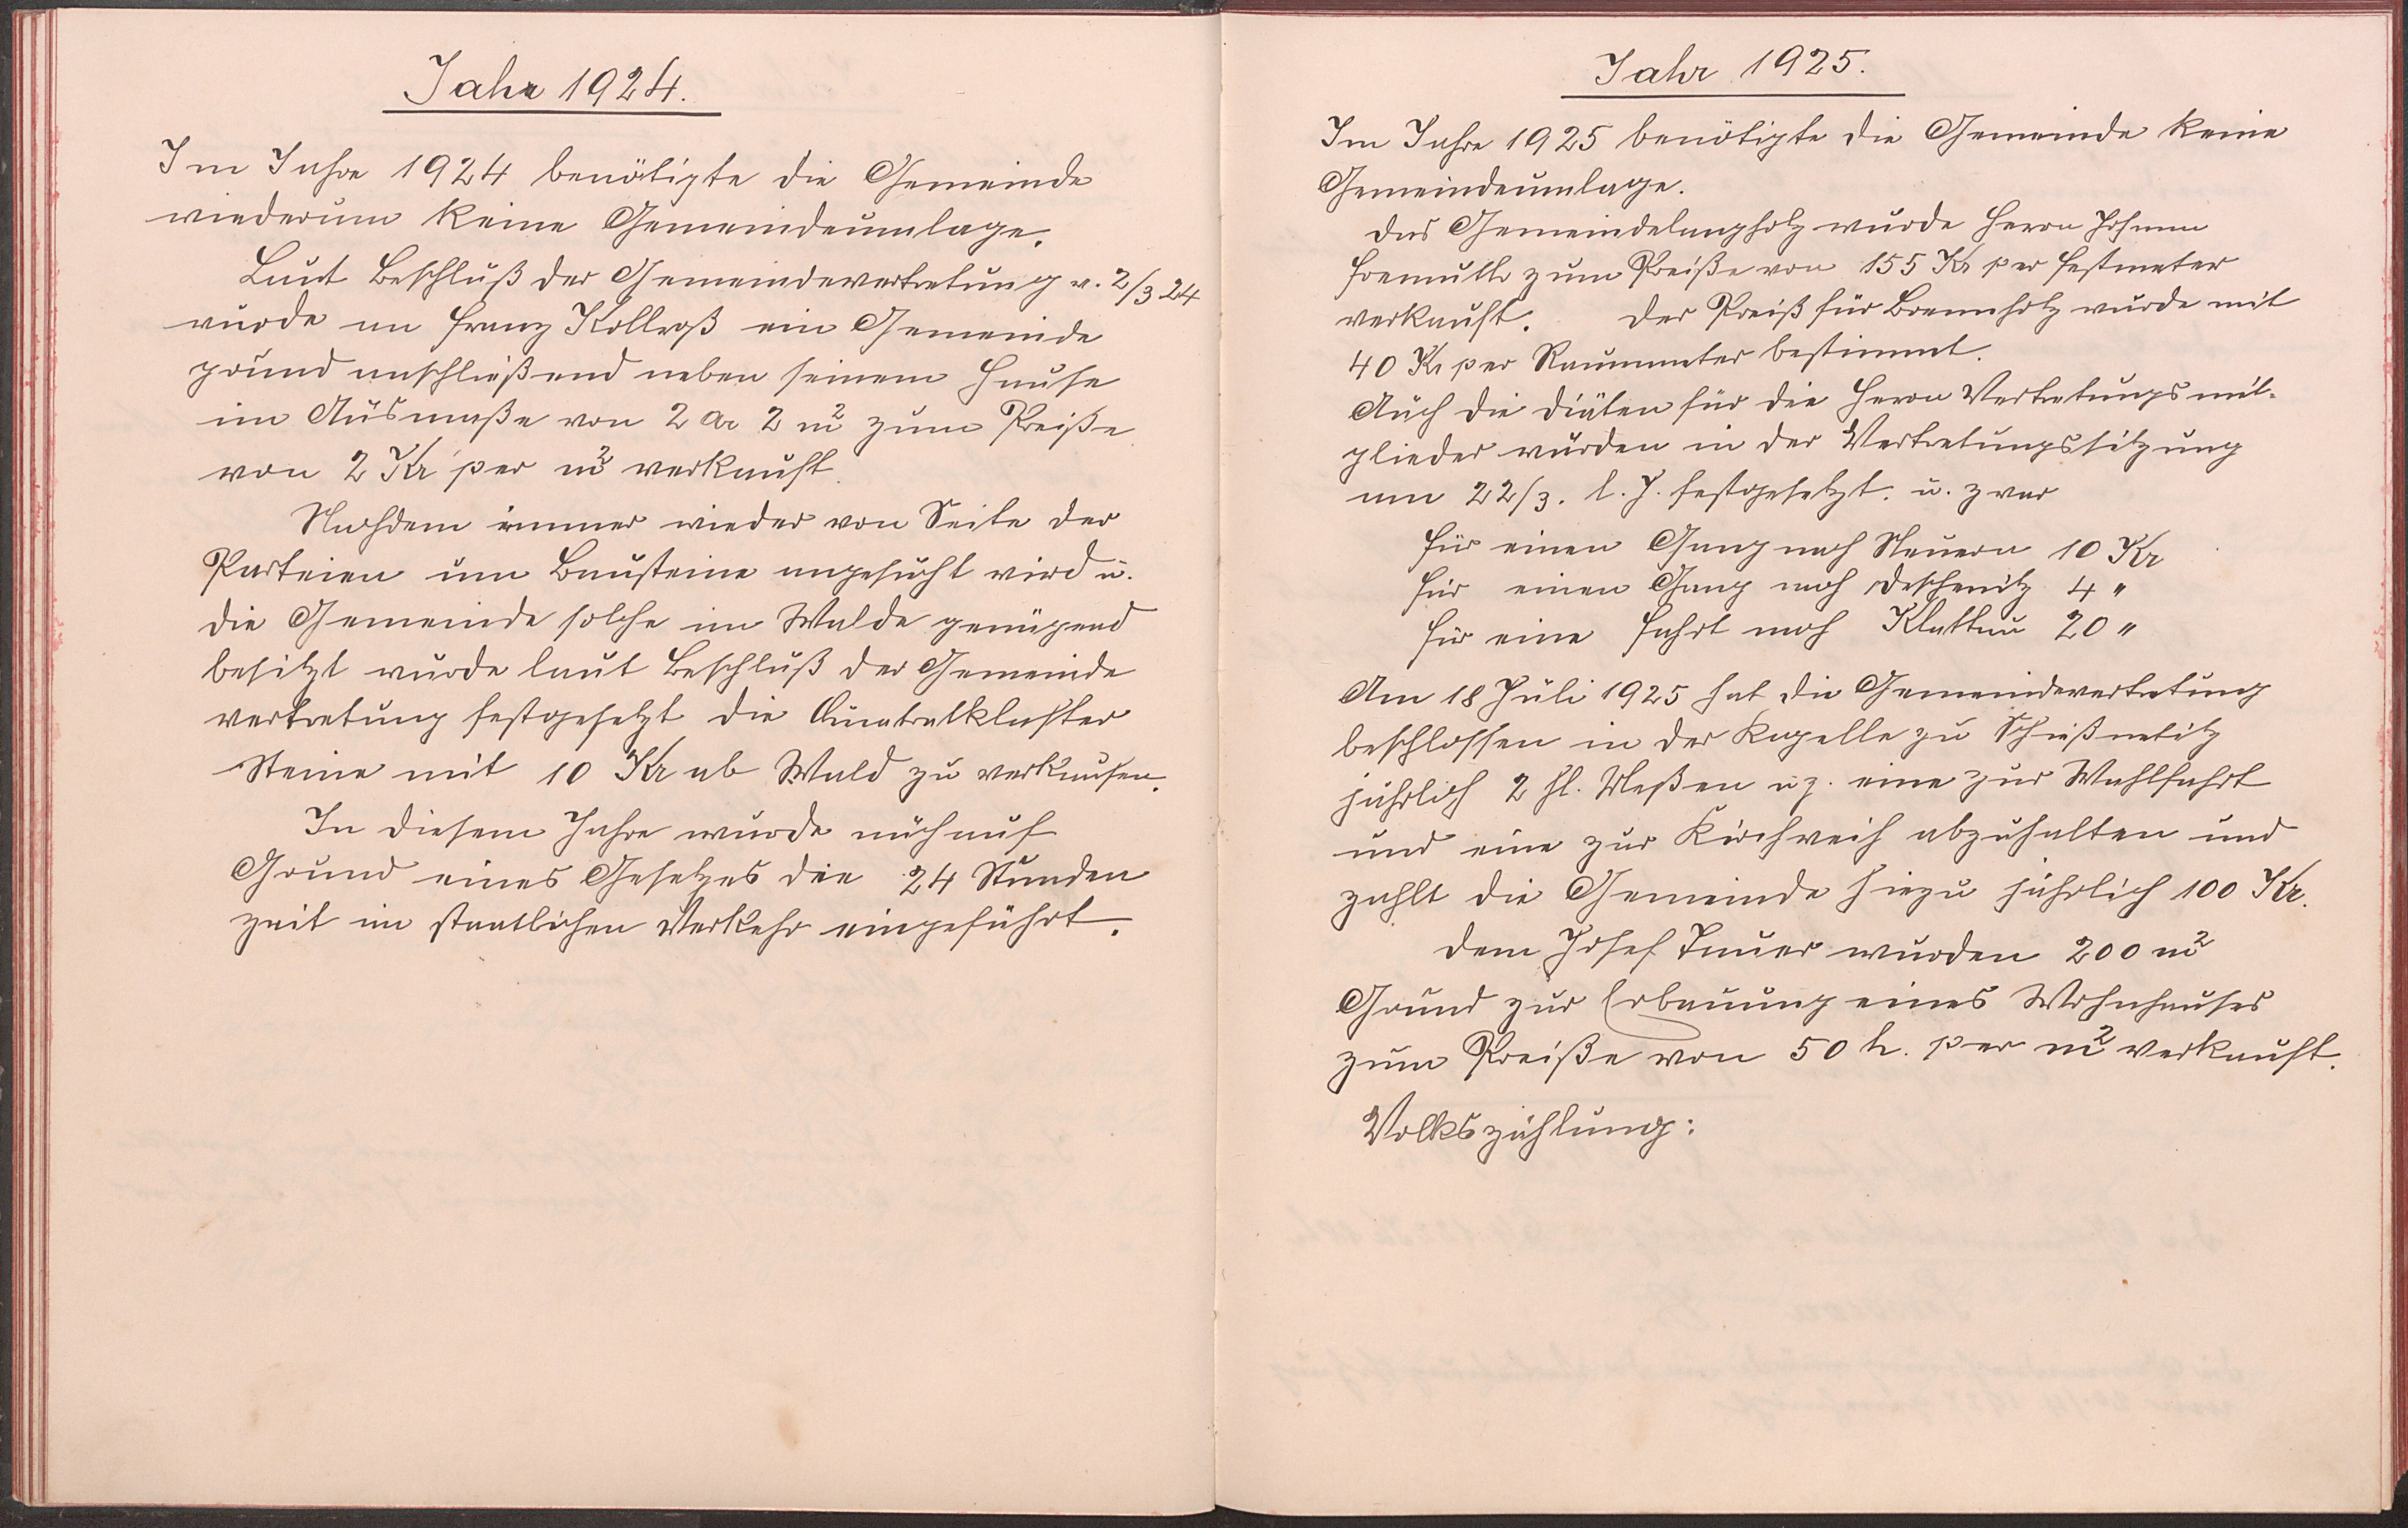 Jahr 1924.
Im Jahre 1924 benötigte die Gemeinde
wiederum keine Gemeindeumlage.
Laut Beschluß der Gemeindevertretung v. 2/3 24
wurde an Franz Kollroß ein Gemeinde
grund anschließend neben seinem Hause
im Ausmaße von 2 ar 2 m² zum Preiße
von 2 Kr per m² verkauft.
Nachdem immer wieder von Seite der
Parteien um Bausteine angesucht wird u.
die Gemeinde solche im Walde genügend
besitzt wurde laut Beschluß der Gemeinde
vertretung festgesetzt die Quatratklafter
Steine mit 10 Kr ab Wald zu verkaufen.
In diesem Jahre wurde auch auf
Grund eines Gesetzes die 24 Stunden
zeit im staatlichen Verkehr eingeführt.
Jahr 1925.
Im Jahre 1925 benötigte die Gemeinde keine
Gemeindeumlage.
Das Gemeindelangholz wurde Herrn Johann
zum Preiße von 155 Kr per Festmeter
verkauft. Der Preiß für Brennholz wurde mit
40 Kr per Raummeter bestimmt.
Auch die Diäten für die Herrn Vertretungsmit-
glieder wurden in der Vertretungssitzung
am 22/3. l. J. festgesetzt. u. zwar
für einen Gang nach Neuern 10 Kr
für einen Gang nach Deschenitz 4 "
für eine Fahrt nach Klattau 20 "
Am 18 Juli 1925 hat die Gemeindevertretung
beschlossen in der Kapelle zu Schießnetitz
jährlich 2 hl. Meßen u z. eine zur Wahlfahrt
und eine zur Kirchweih abzuhalten und
zahlt die Gemeinde hiezu jährlich 100 Kr.
Dem Josef Tauer wurden 200 m²
Grund zur Erbauung eines Wohnhauses
zum Preiße von 50 h. per m² verkauft.
Volkszählung: